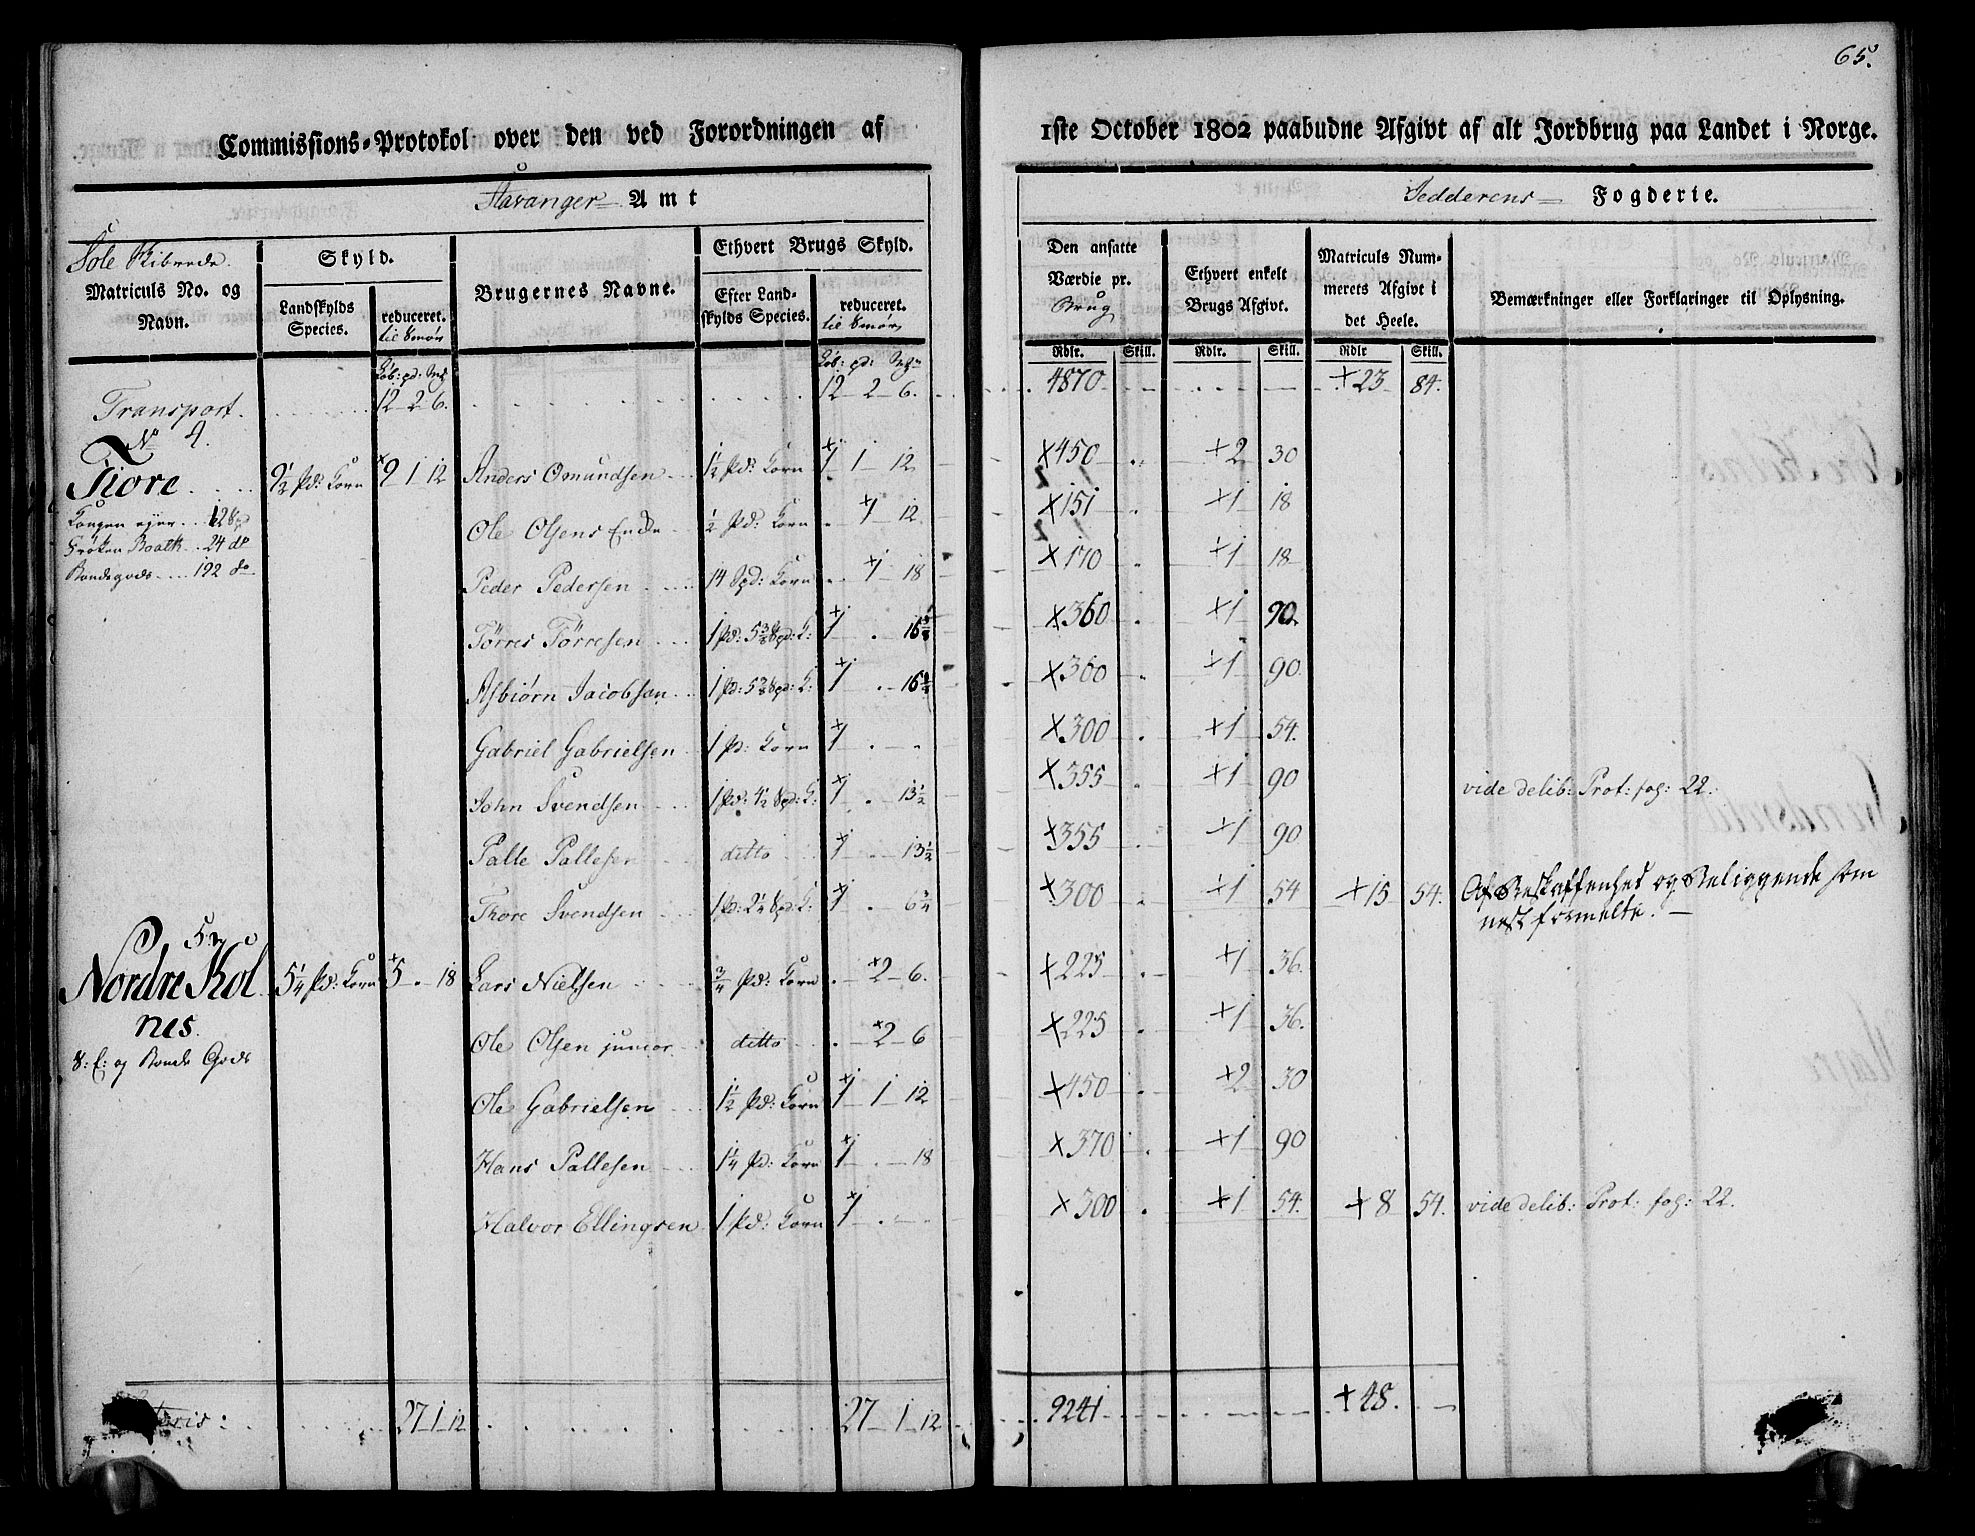 65.
Commissions-Protokol over den ved Forordningen af 1ste October 1802 paabudne Afgivt af alt Jordbrug paa Landet i Norge.
Stavanger Amt Jedderens Fogderie.
Sole Skibrede.
Matriculs No. og Navn.
Skyld.
Landskylds Species.
reduceret. til Smør
Brugernes Navne.
Ethvert Brugs Skyld.
Efter Landskylds Species.
reduceret. til Smør
Den ansatte Værdie pr. Brug
Ethvert enkelt Brugs Afgivt.
Matriculs Nummerets Afgivt i det Heele.
Bemærkninger eller Forklaringer til Oplysning.
Rdlr. Skill. Rdlr. Skill. Rdlr Skill.
Transport. 12 2 6. 12 2 6. 4870 +23 84.
No 4.
Tiore 9½ Pd: Korn +9 1 12 Anders Omundsen ½ Pd: Korn +1 1 12 +450 +2 30
Kongen ejer 12 Spd
Frøken Boalth 24 do
Bondegods 192 do
Ole Olsens Encke ½ Pd: Korn +1 12 +151 +1 18
Peder Pedersen 14 Spd: Korn +1 18 +170 +1 18
Tørres Tørresen 1 Pd: Spd: K: +1 +360 +1 90
Asbiørn Jacobsen 1 Pd: Spd: K: +1 +360 +1 90
Gabriel Gabrielsen 1 Pd: Korn +1 +300 +1 54.
John Svendsen 1 Pd: 4½ Spd: K: +1 13½ +355 +1 90 vide delib: Prot: fog: 22.
Palle Pallesen ditto +1 13½ +355 +1 90
Thore Svendsen 1 Pd: 2¼ Spd: K: +1 6¾ +300 +1 54 +15 54. Af Beskaffenhed og Beliggende som
nest formelte.
5.
Nordre Kol 5¼ Pd: Korn +5 18 Lars Nielsen ¾ Pd: Korn +2 6. +225 +1 36.
nes.
S: E: og Bonde Gods
Ole Olsen junior ditto +2 6 +225 +1 36.
Ole Gabrielsen 1½ Pd: Korn +1 1 12 +450 +2 30
Hans Pallesen 1¼ Pd: Korn +1 18 +370 +1 90
Halvor Ellingsen 1 Pd: Korn +1 +300 +1 54. +8 54. vide delib: Prot: fog: 22.
27 1 12 27 1 12 9241 +48.